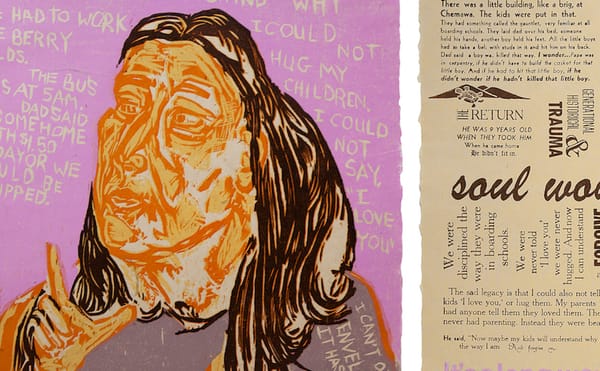 AND WHY
I COULD
NOT
HUG MY
CHILDREN,
I COULD
NOT
SAY,
"I
LOVE
YOU"
HAD TO WORK
BERRY
THE BUS
AT 5AM.
DAD SAID
COME HOME
$1.50
DAY OR WE
BE
I CAN'T
IT HAS
There was a little building, like a brig, at
Chemawa. The kids were put in that.
They had something called the gauntlet, very familiar at all
boarding schools. They laid dad over his bed, someone
held his hands, another boy held his feet. All the little boys
had to take a belt with studs in it and hit him on his back.
Dad said a boy was killed that way, I wonder...?
in carpentry, if he didn't have to build the casket for that
little boy. And if he had to hit that little boy, if he
didn't wonder if he hadn't killed that little boy.
THE RETURN
HE WAS 9 YEARS OLD
WHEN THEY TOOK HIM
When he came home
He didn't fit in.
GENERATIONAL
HISTORICAL
& TRAUMA
soul wou
We were
disciplined the
way they were
in boarding
schools.
We were
never told
'I love you'
we were never
hugged. And now
I can understand
The sad legacy is that I could also not tell
kids 'I love you,' or hug them. My parents
had anyone tell them they loved them. The
never had parenting. Instead they were bea
He said, "Now maybe my kids will understand why
the way I am